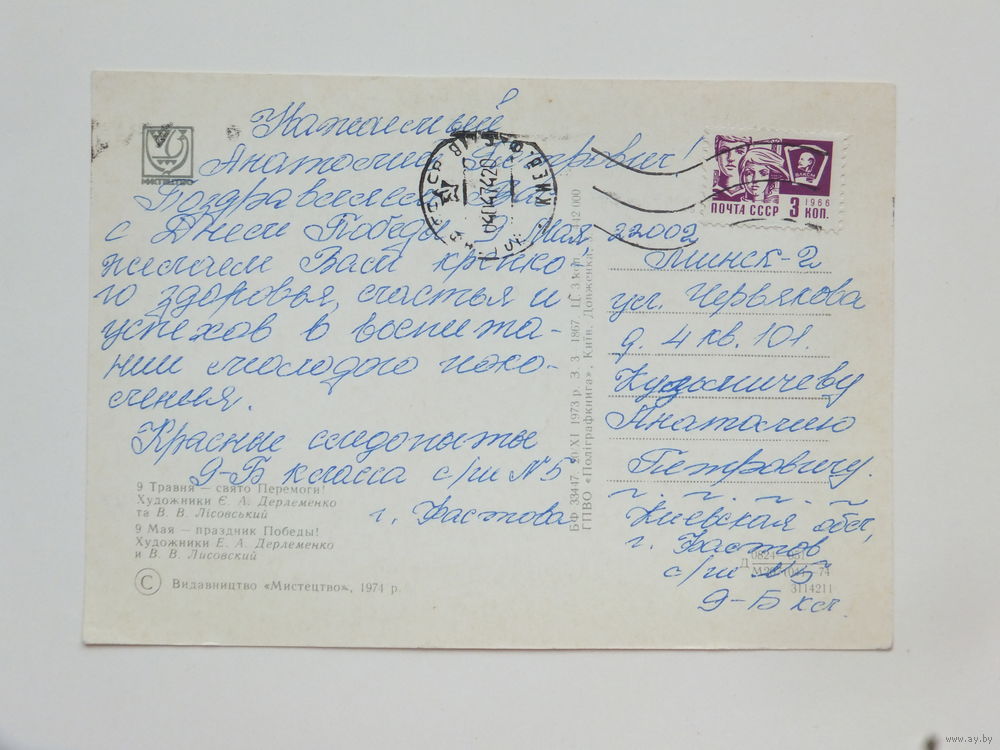 Уважаемый
Анатолий Петрович!
Поздравляем Вас
с Днем Победы 9 Мая
желаем Вам крепко-
го здоровья, счастья и
успехов в воспита-
нии молодого поко-
ления.
Красные следопыты
9-Б класса с/ш №5
г. Фастова
МИСТЕЦТВО
9 Травня — свято Перемоги!
Художники Є. А. Дерлеменко
та В. В. Лісовський
9 Мая — праздник Победы!
Художники Е. А. Дерлеменко
и В. В. Лисовский
С Видавництво «Мистецтво», 1974 р.
БФ 33447. 20/XI 1973 р. З. 3—1867. Ц. 3 коп.
ГПВО «Поліграфкнига», Київ, Довженка, 3.
КИЕВ
ПОЧТА СССР 3 КОП.
1966
ВЛКСМ
22002
Минск-2
ул. Червякова
д. 4 кв. 101.
Кудомичеву
Анатолию
Петровичу.
Киевская обл,
г. Фастов
с/ш №5
9-Б кл.
3114211
www.ay.by